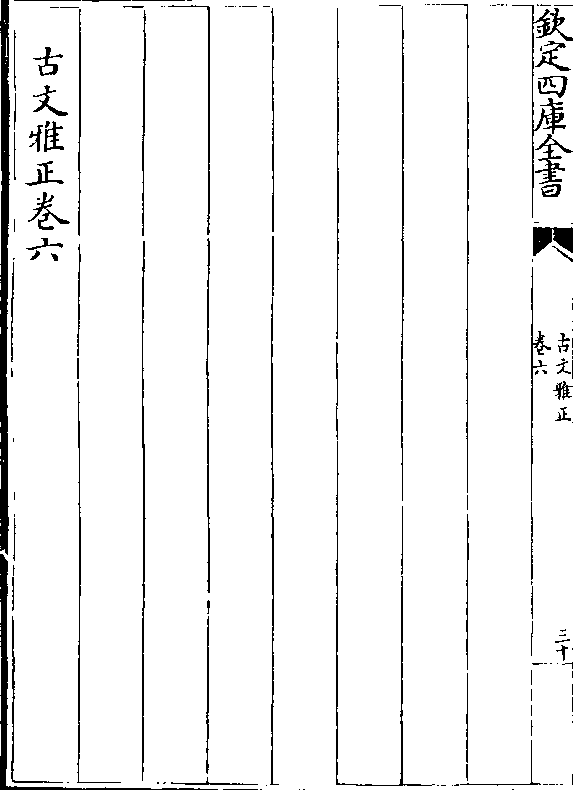 欽定四庫全書
古文雅正
卷六
三十
古文雅正卷六